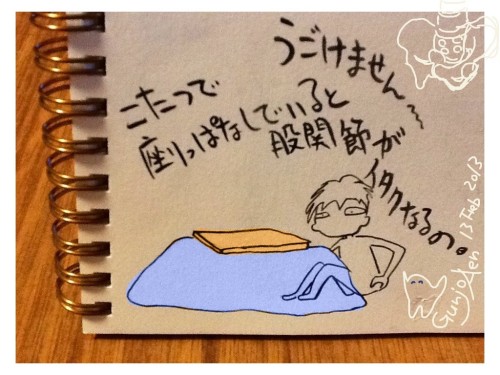 うごけません〜
こたつで
座りっぱなしでいると
股関節が
イタクなるの。
13 Feb 2013